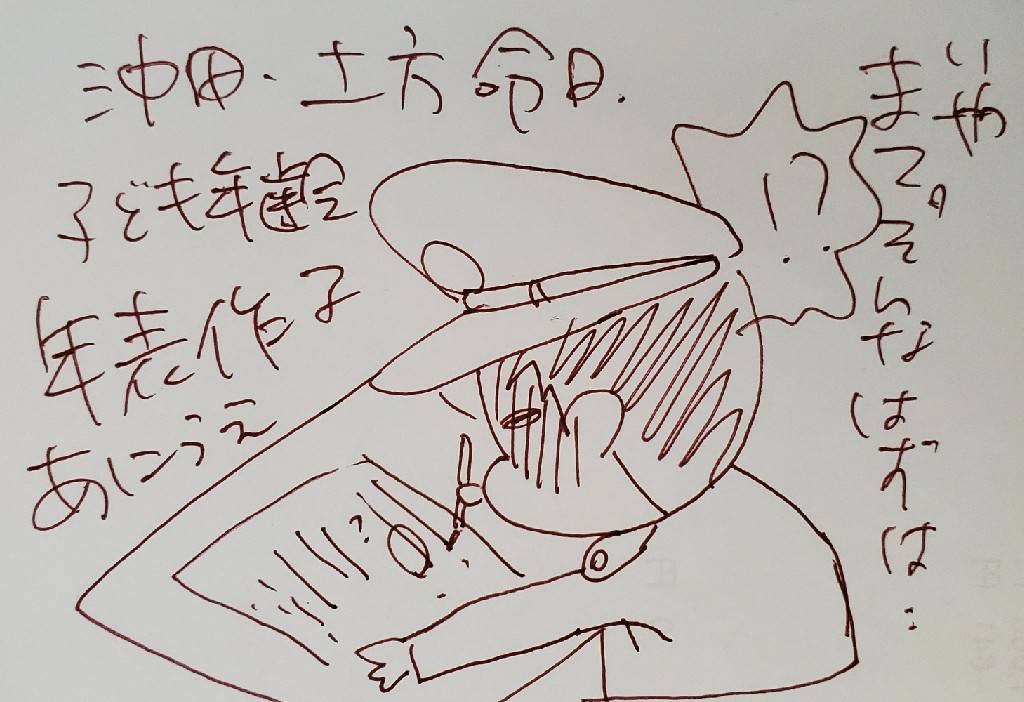 沖田・土方命日.
子ども年齢
年表作る
あにうえ
!?
いや
まて。そんなはずは…